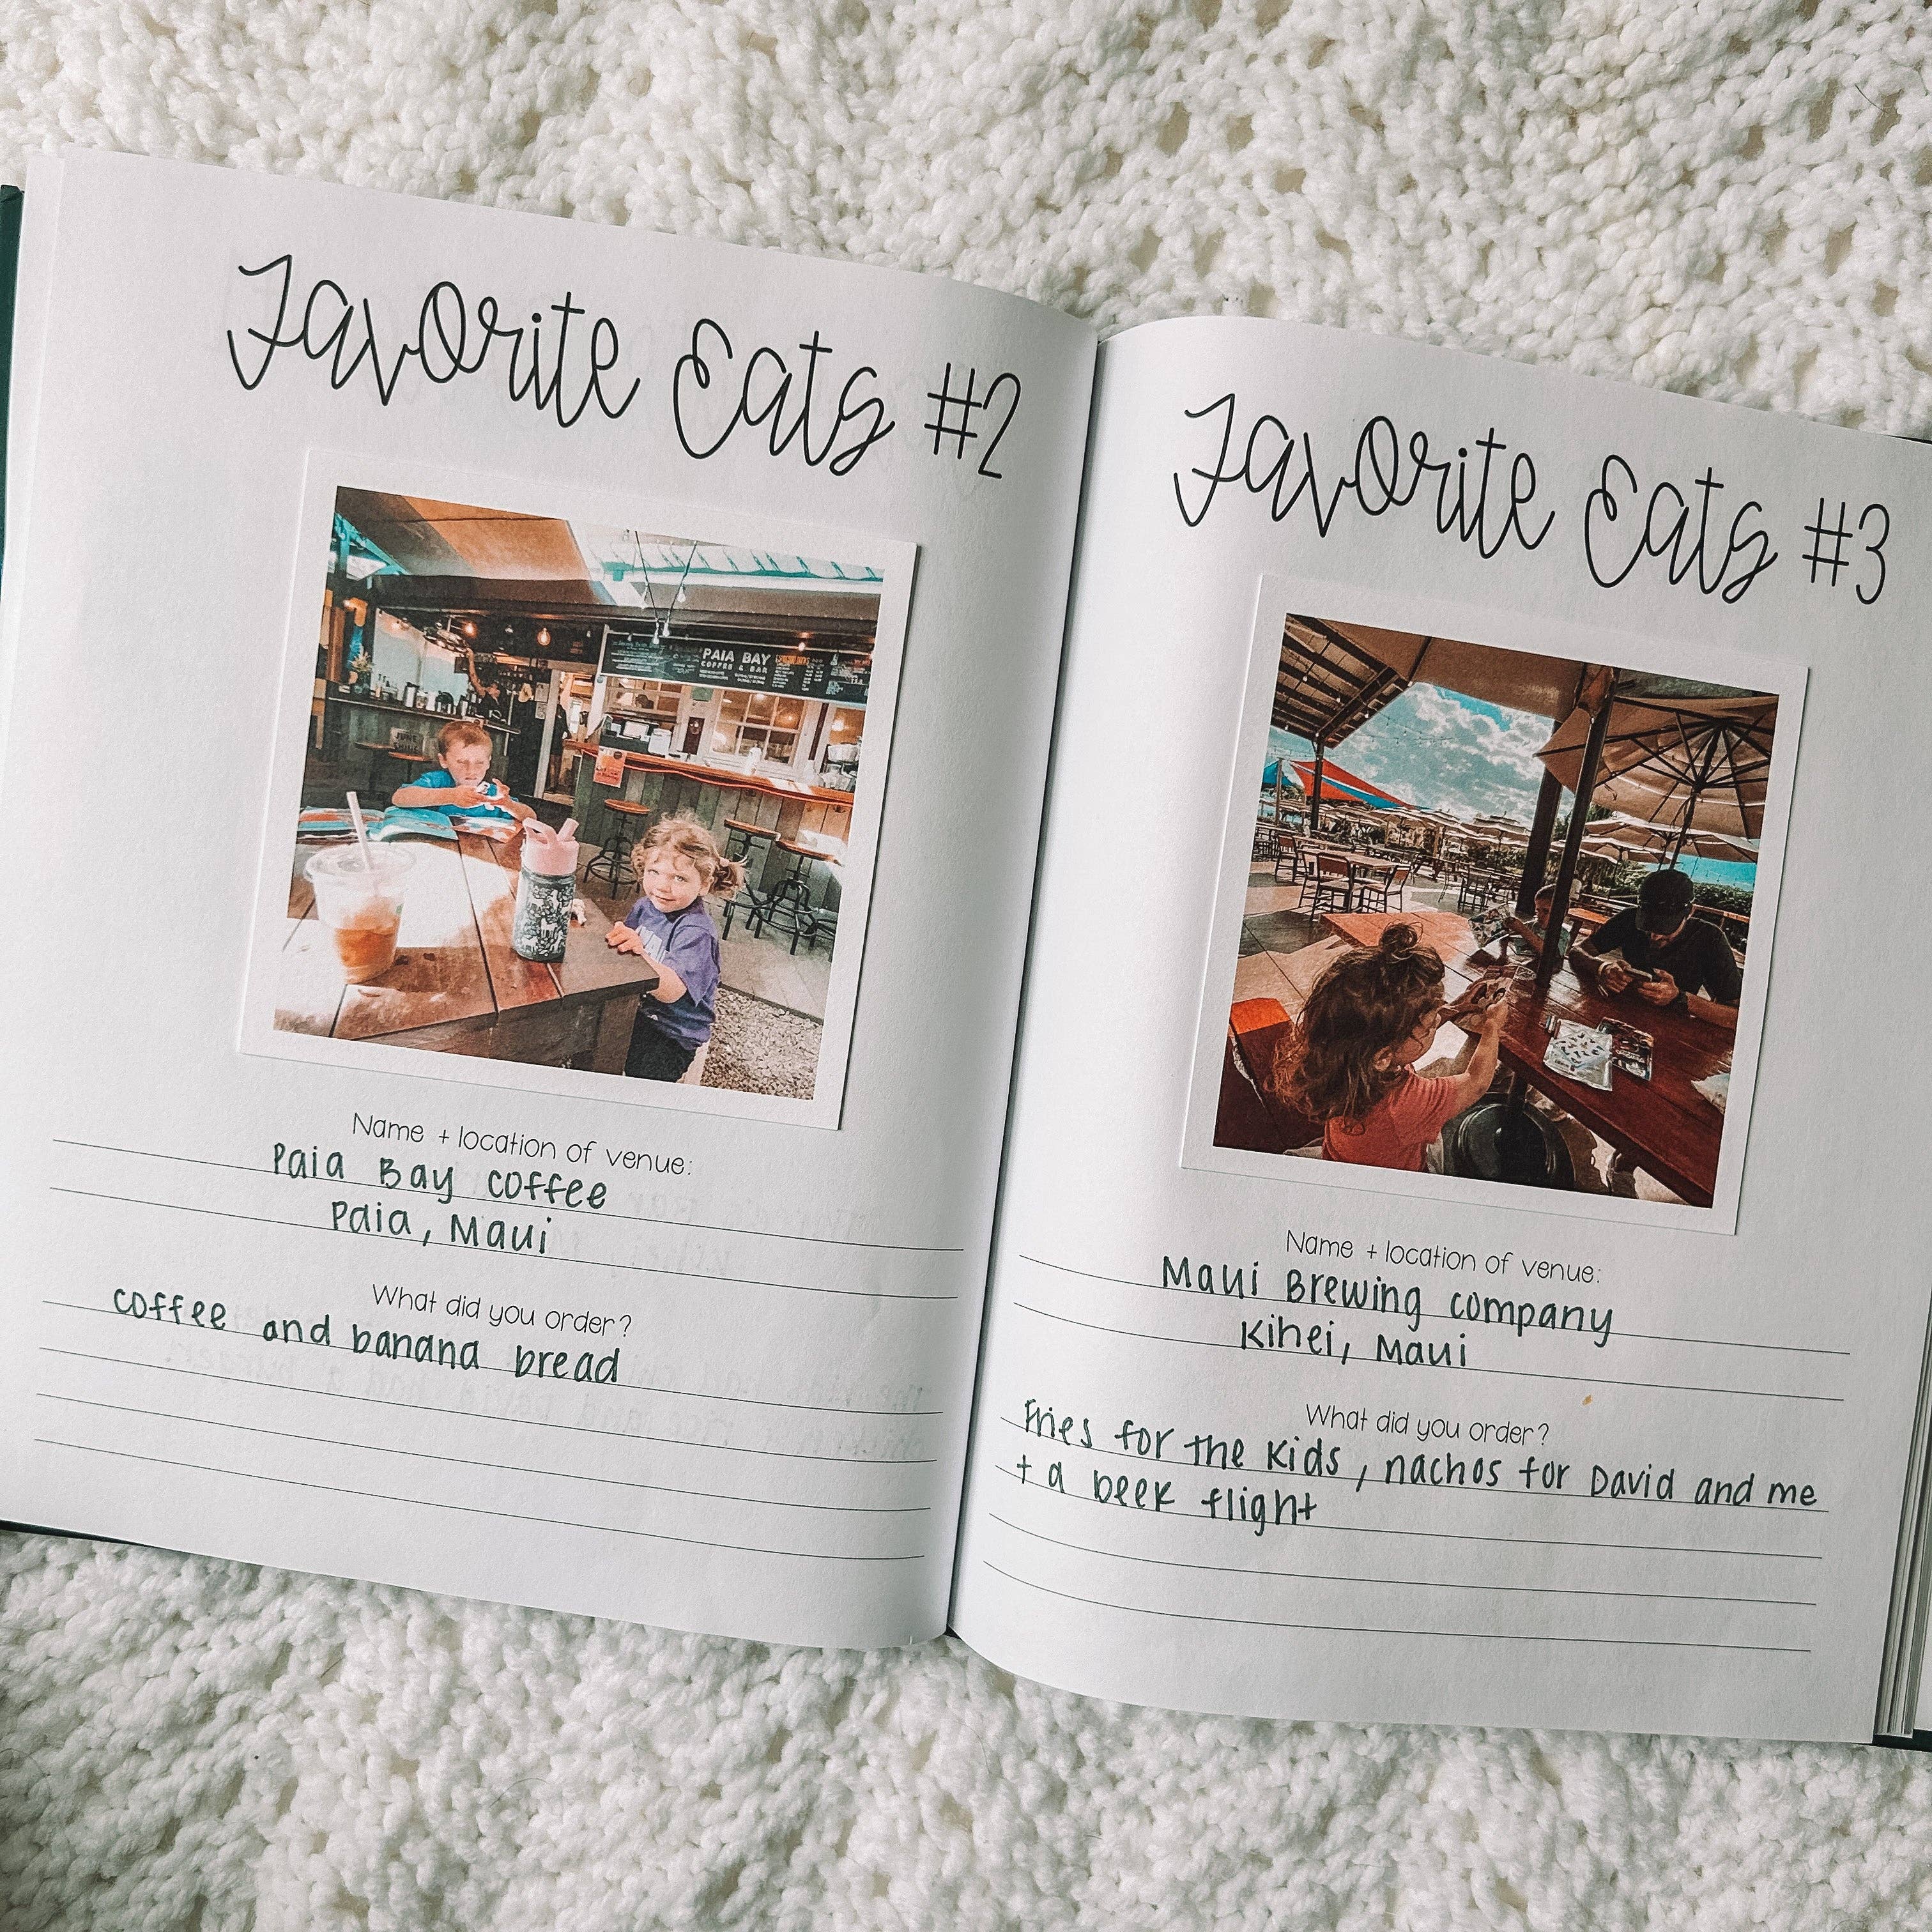 Favorite Eats #2
PAIA BAY
COFFEE & BAR
Name + location of venue:
Paia Bay coffee
Paia, Maui
What did you order?
coffee and banana bread
Favorite Eats #3
Name + location of venue:
Maui Brewing company
Kihei, Maui
What did you order?
Fries for the kids, nachos for David and me
+ a beer flight